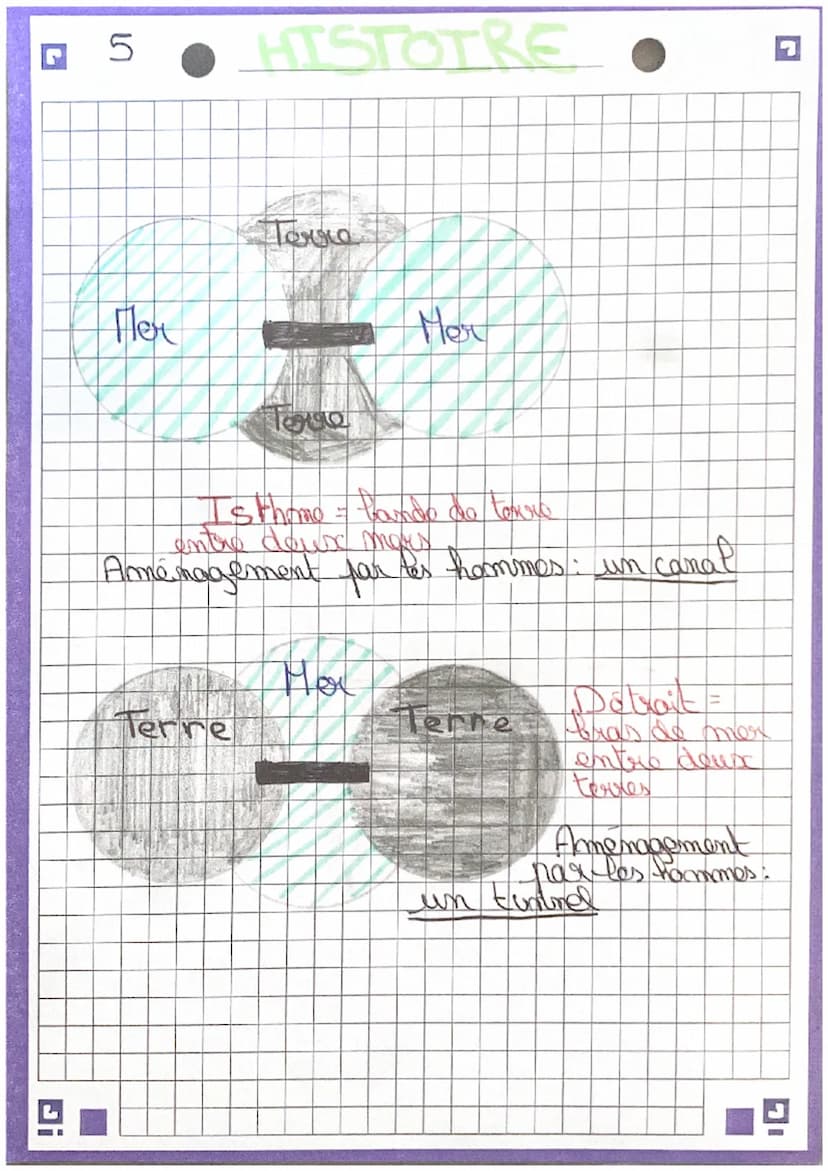 5
HISTOIRE
Terre
Mer
Mer
Terre
Isthme = bande de terre
entre deux mers
Aménagement par les hommes : un canal
Mer
Terre
Terre
Détroit =
bras de mer
entre deux
terres
Aménagement
par les hommes :
un tunnel